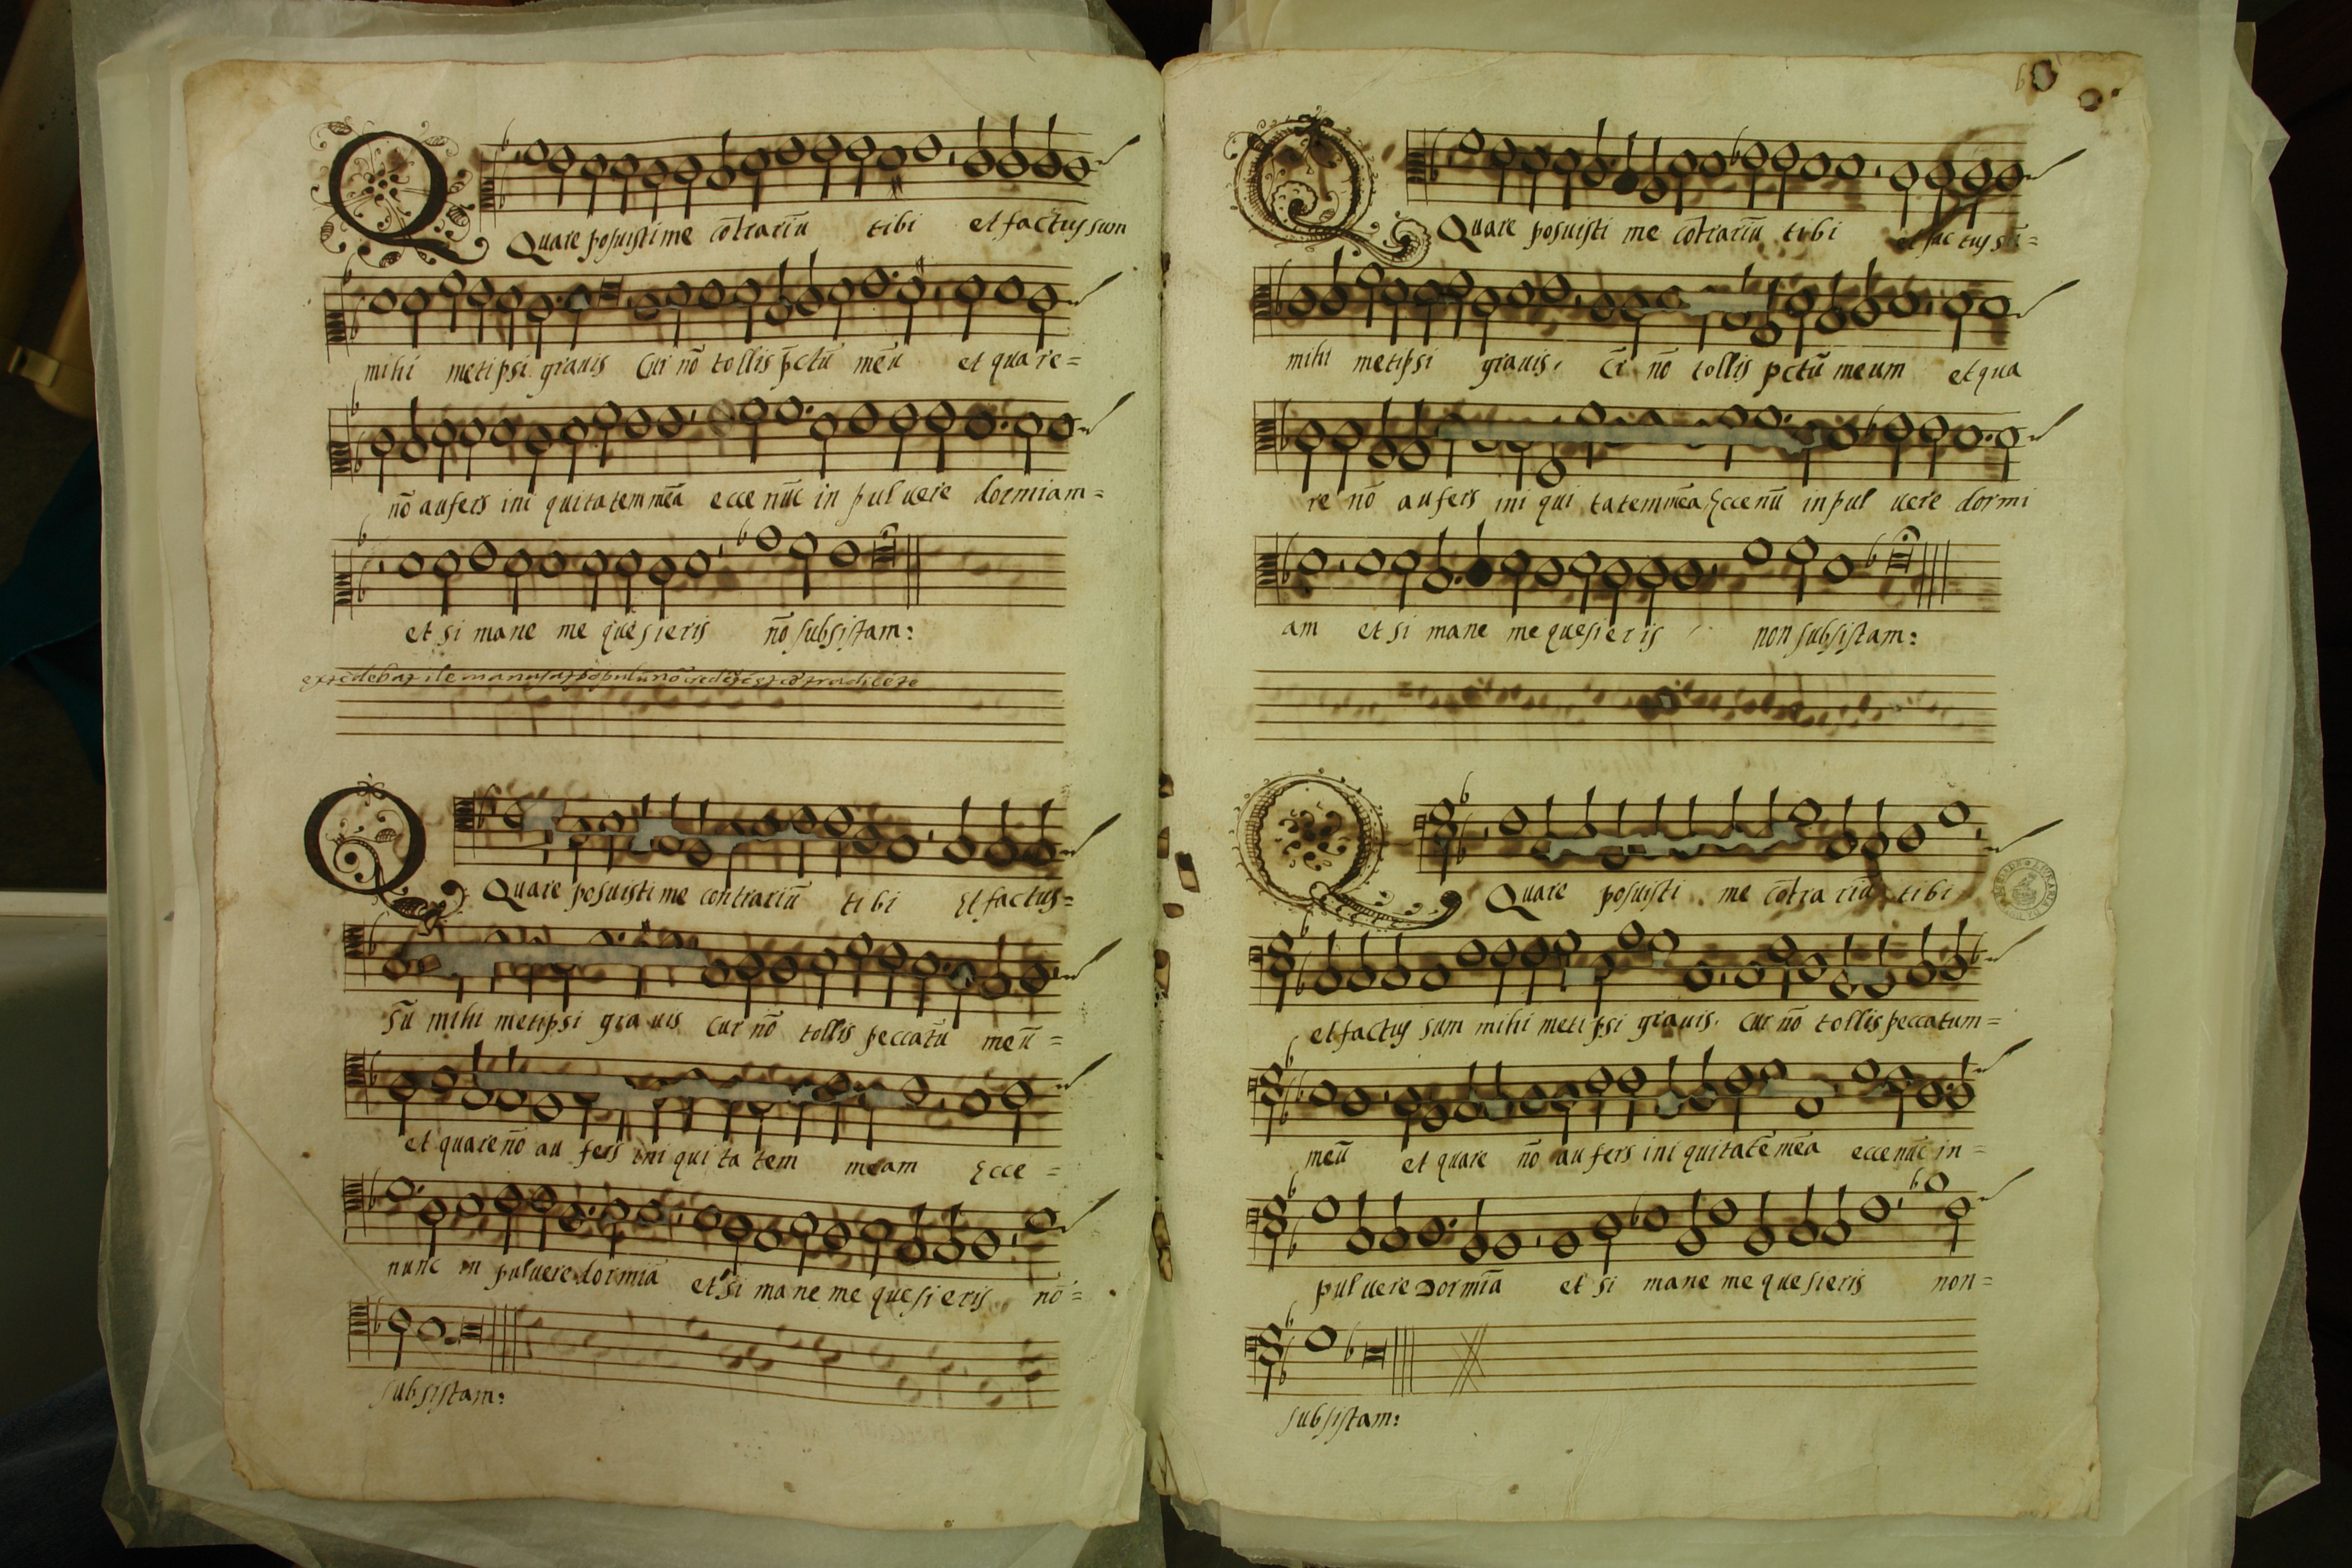 Quare posuisti me cōtrariū tibi et factus sum
mihi metipsi grauis Cur nō tollis pctū meū et quare=
nō aufers ini quitatem meā ecce nūc in pul uere dormiam=
et si mane me quesieris nō subsistam:
Quare posuisti me contrariū tibi Et factus=
Sū mihi metipsi gra uis Cur nō tollis peccatū meū=
et quare nō au fers ini qui ta tem meam Ecce=
nunc in puluere dormiā et si mane me quesieris nō=
subsistam:
Quare posuisti me cōtrariū tibi et factus sū=
mihi metipsi grauis, nō tollis pctū meum et qua
re nō aufers ini qui tatem meā Ecce nū in pul uere dormi
am et si mane me quesieris non subsistam:
Quare posuisti me cōtra riū tibi
et factus sum mihi metipsi grauis. Cur nō tollis peccatum=
meū et quare nō aufers ini quitatē meā ecce nūc in=
pul uere Dormiā et si mane me quesieris non=
subsistam: